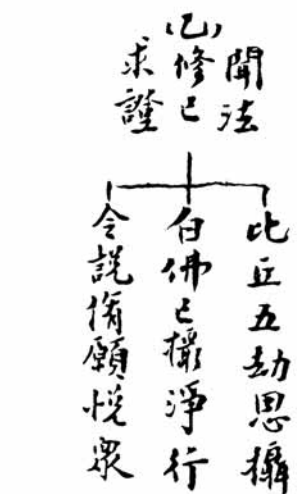 聞法
(己)修已
求證
比丘五劫思攝
白佛已攝淨行
令說脩願悅眾